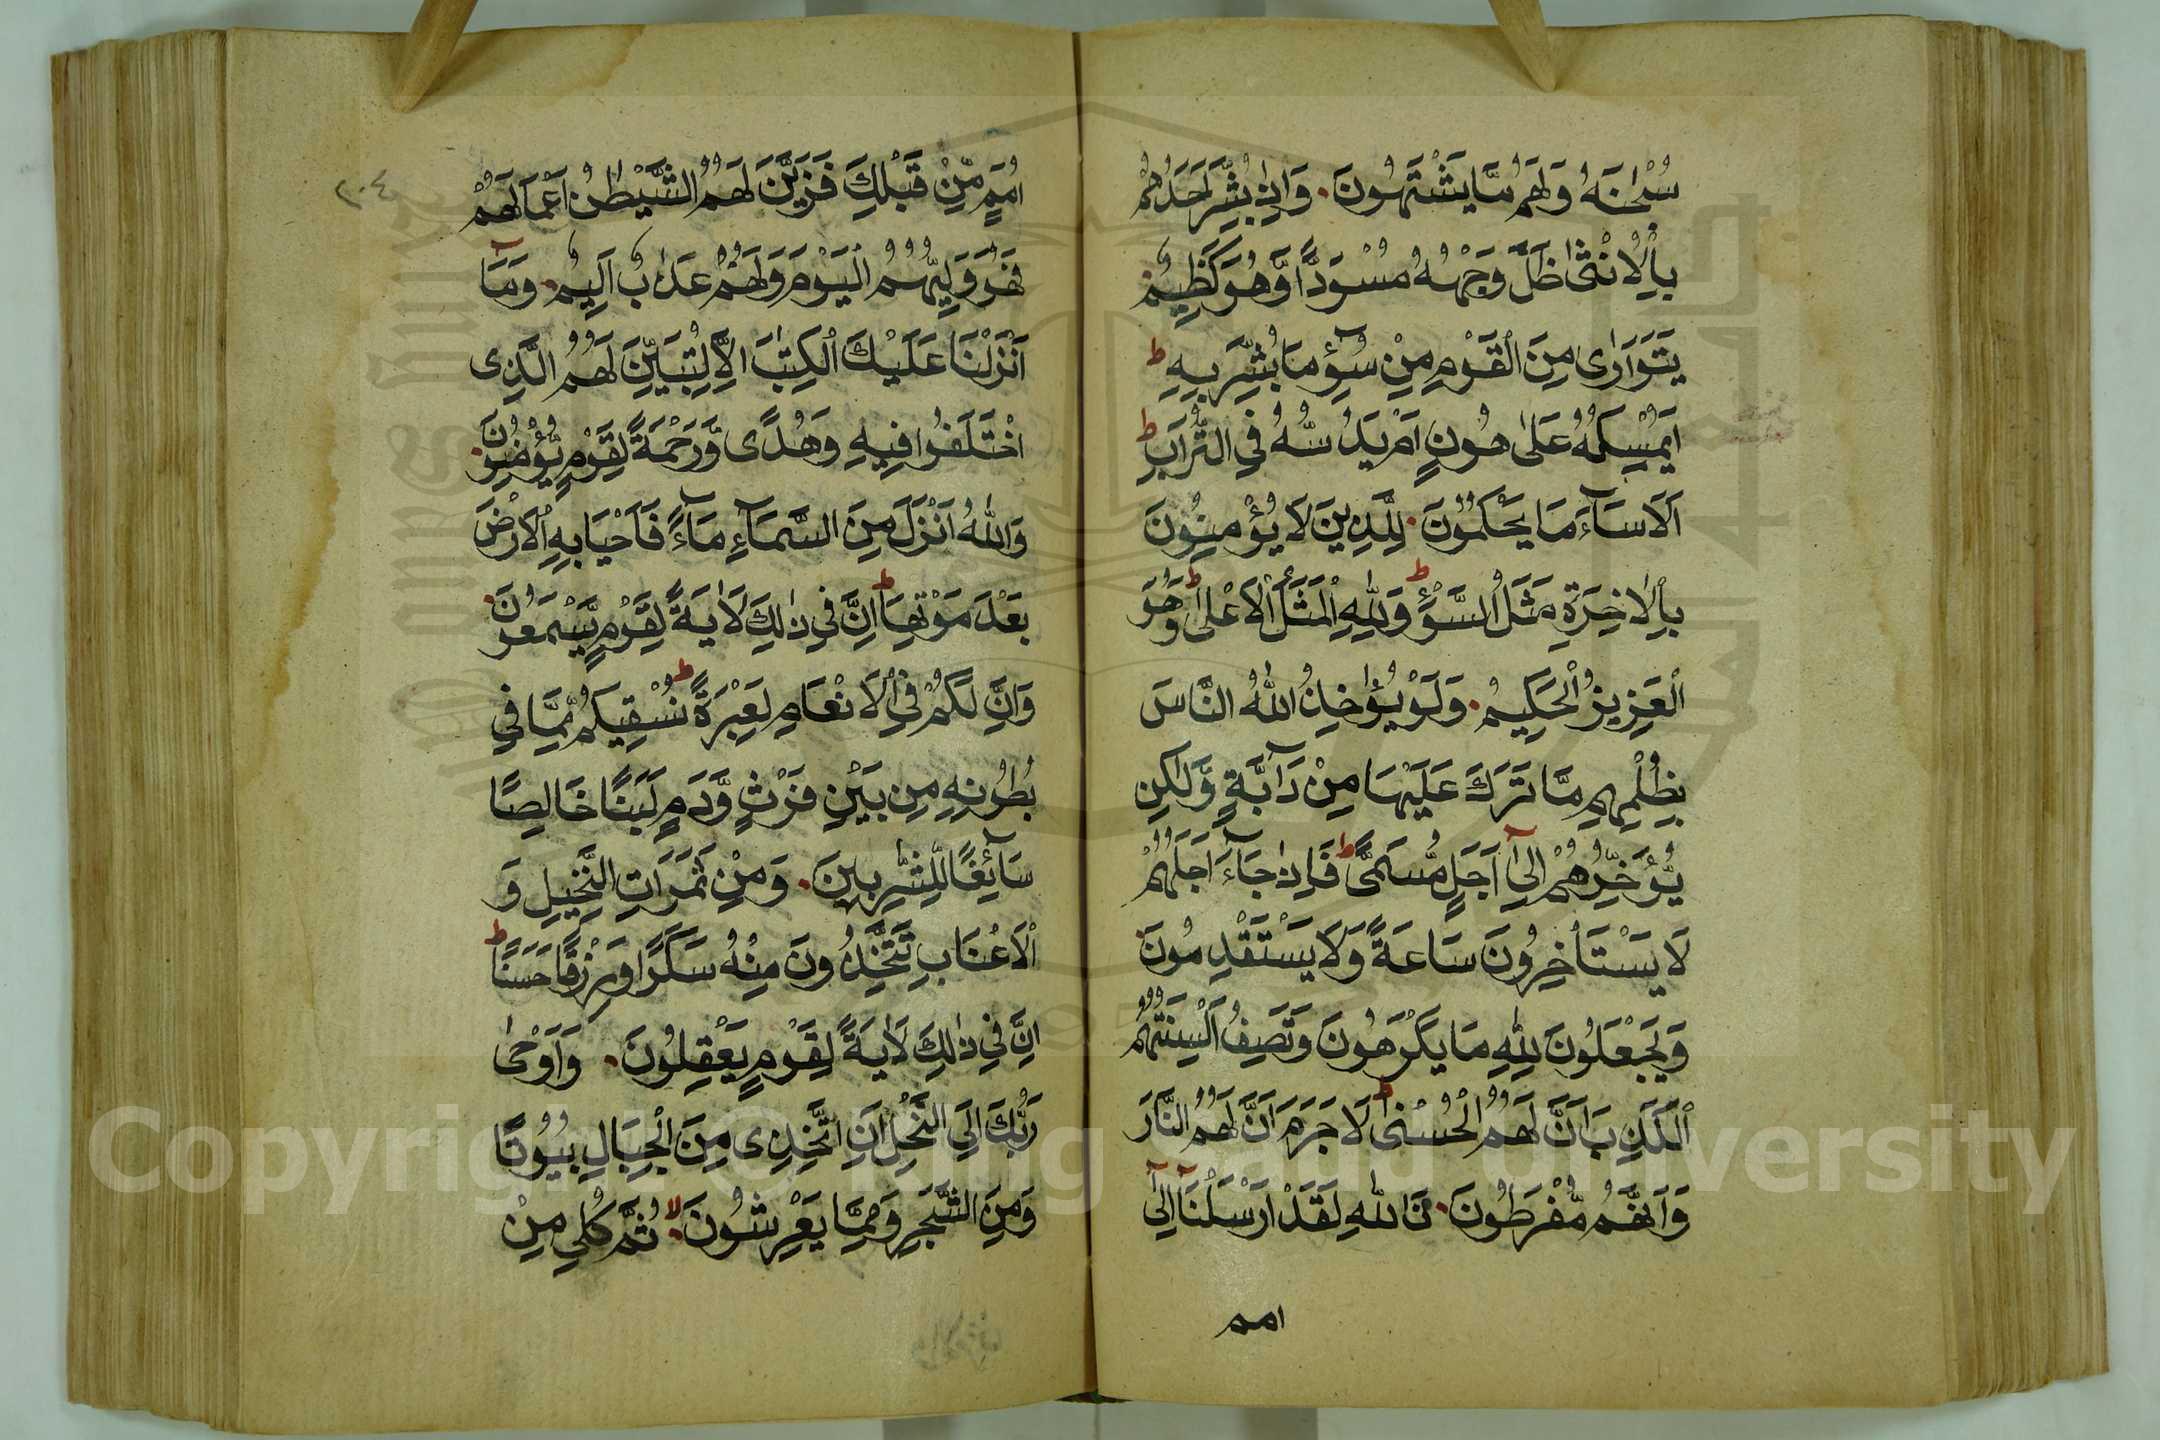 سُبْحٰنَهٗ وَلَهُمْ مَّا يَشْتَهُونَ وَاِذَا بُشِّرَ اَحَدُهُمْ
بِالْاُنْثٰى ظَلَّ وَجْهُهٗ مُسْوَدًّا وَّهُوَ كَظِيْمٌ
يَتَوَارٰى مِنَ الْقَوْمِ مِنْ سُوْٓءِ مَا بُشِّرَ بِهٖ ط
اَيُمْسِكُهٗ عَلٰى هُوْنٍ اَمْ يَدُسُّهٗ فِي التُّرَابِ ط
اَلَا سَآءَ مَا يَحْكُمُوْنَ لِلَّذِيْنَ لَا يُؤْمِنُوْنَ
بِالْاٰخِرَةِ مَثَلُ السَّوْءِ ط وَلِلّٰهِ الْمَثَلُ الْاَعْلٰى ط وَهُوَ
الْعَزِيْزُ الْحَكِيْمُ وَلَوْ يُؤَاخِذُ اللّٰهُ النَّاسَ
بِظُلْمِهِمْ مَّا تَرَكَ عَلَيْهَا مِنْ دَآبَّةٍ وَّلٰكِنْ
يُّؤَخِّرُهُمْ اِلٰٓى اَجَلٍ مُّسَمًّى ط فَاِذَا جَآءَ اَجَلُهُمْ
لَا يَسْتَاْخِرُوْنَ سَاعَةً وَّلَا يَسْتَقْدِمُوْنَ
وَيَجْعَلُوْنَ لِلّٰهِ مَا يَكْرَهُوْنَ وَتَصِفُ اَلْسِنَتُهُمُ
الْكَذِبَ اَنَّ لَهُمُ الْحُسْنٰى ط لَا جَرَمَ اَنَّ لَهُمُ النَّارَ
وَاَنَّهُمْ مُّفْرَطُوْنَ تَاللّٰهِ لَقَدْ اَرْسَلْنَآ اِلٰٓى
امم
٢٠٤
اُمَمٍ مِّنْ قَبْلِكَ فَزَيَّنَ لَهُمُ الشَّيْطٰنُ اَعْمَالَهُمْ
فَهُوَ وَلِيُّهُمُ الْيَوْمَ وَلَهُمْ عَذَابٌ اَلِيْمٌ وَمَآ
اَنْزَلْنَا عَلَيْكَ الْكِتٰبَ اِلَّا لِتُبَيِّنَ لَهُمُ الَّذِى
اخْتَلَفُوْا فِيْهِ وَهُدًى وَّرَحْمَةً لِّقَوْمٍ يُّؤْمِنُوْنَ
وَاللّٰهُ اَنْزَلَ مِنَ السَّمَآءِ مَآءً فَاَحْيَا بِهِ الْاَرْضَ
بَعْدَ مَوْتِهَا ط اِنَّ فِيْ ذٰلِكَ لَاٰيَةً لِّقَوْمٍ يَّسْمَعُوْنَ
وَاِنَّ لَكُمْ فِي الْاَنْعَامِ لَعِبْرَةً ط نُسْقِيْكُمْ مِّمَّا فِيْ
بُطُوْنِهٖ مِنْ بَيْنِ فَرْثٍ وَّدَمٍ لَّبَنًا خَالِصًا
سَآئِغًا لِّلشّٰرِبِيْنَ وَمِنْ ثَمَرٰتِ النَّخِيْلِ وَ
الْاَعْنَابِ تَتَّخِذُوْنَ مِنْهُ سَكَرًا وَّرِزْقًا حَسَنًا ط
اِنَّ فِيْ ذٰلِكَ لَاٰيَةً لِّقَوْمٍ يَّعْقِلُوْنَ وَاَوْحٰى
رَبُّكَ اِلَى النَّحْلِ اَنِ اتَّخِذِىْ مِنَ الْجِبَالِ بُيُوْتًا
وَّمِنَ الشَّجَرِ وَمِمَّا يَعْرِشُوْنَ لا ثُمَّ كُلِيْ مِنْ
Copyright © King Saud University